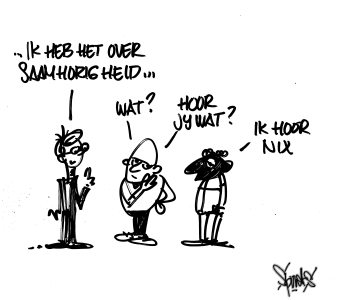 ..IK HEB HET OVER
SAAMHORIGHEID...
WAT?
HOOR
JY WAT?
IK HOOR
NIX